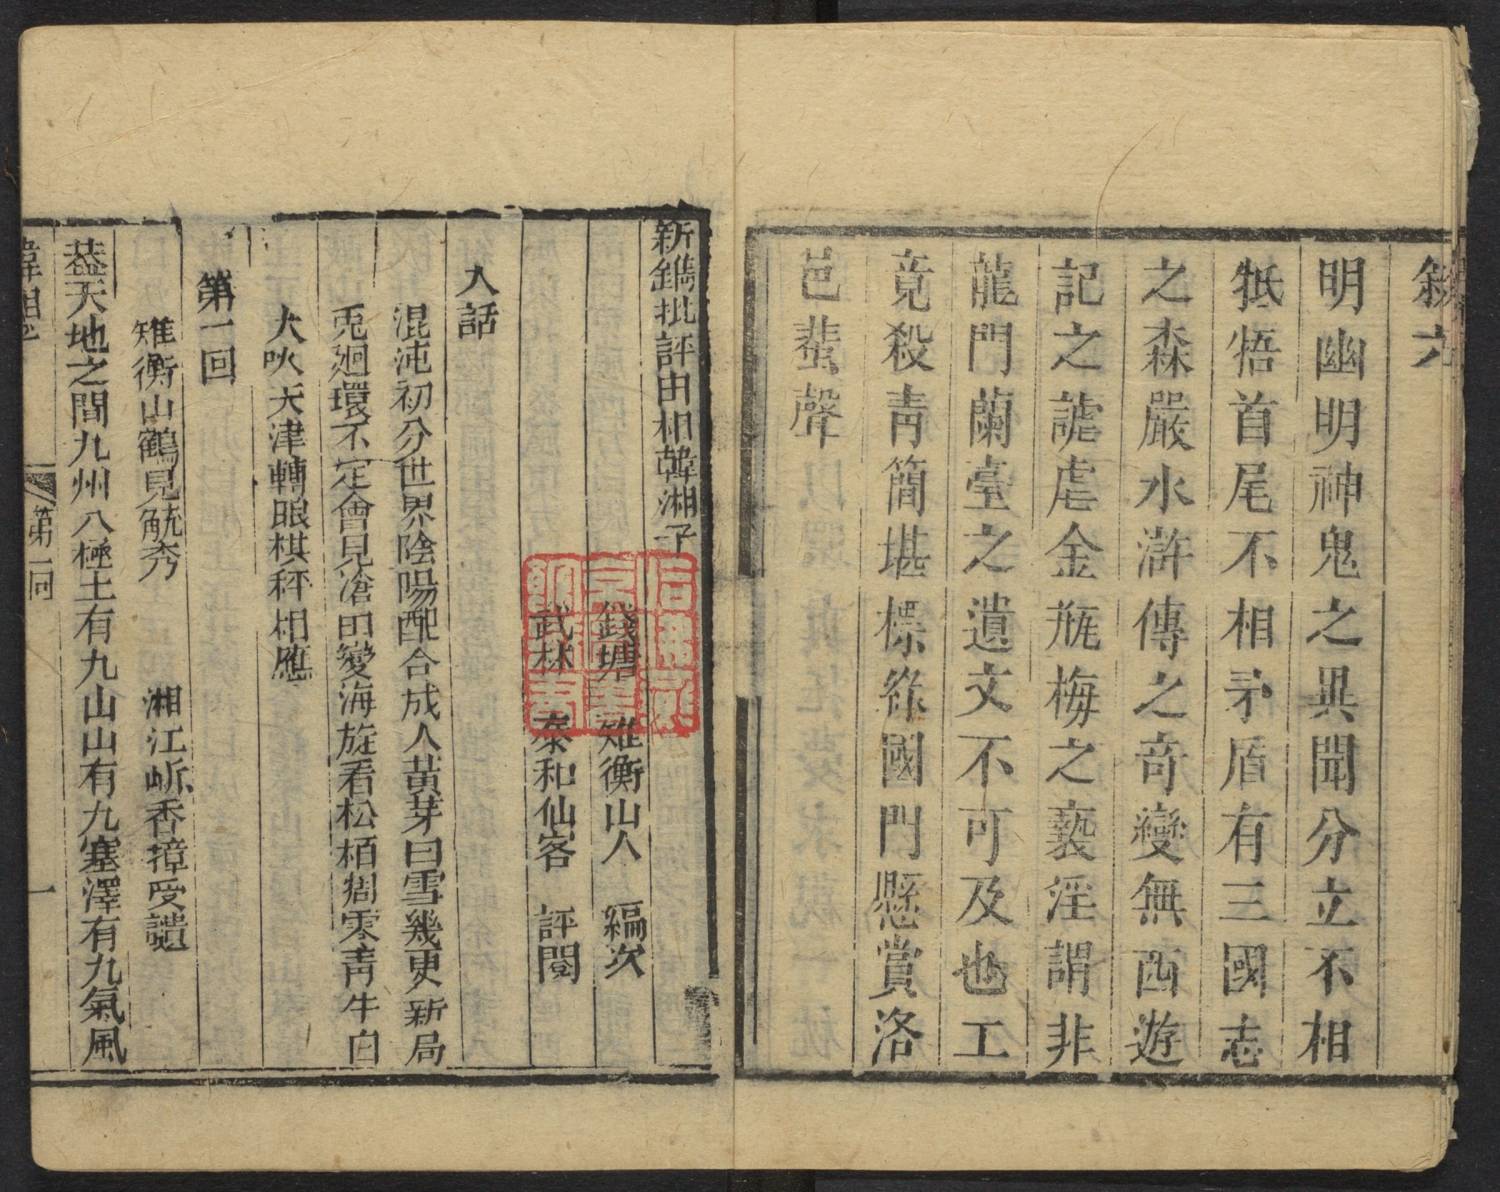 敘六
明幽明神鬼之異聞分立不相
牴悟首尾不相矛盾有三國志
之森嚴水滸傳之奇變無西遊
記之謔虐金瓶梅之褻淫謂非
龍門蘭臺之遺文不可及也工
竟殺青簡堪標祿國門懸賞洛
邑蜚聲
新鐫批評由相韓湘子
錢塘 雉衡山人 編次
武林 泰和仙客 評閱
入話
混沌初分世界陰陽配合成人黃芽白雪幾更新局
兎廻環不定會見滄田變海旋看松栢凋零靑牛白
犬吠天津轉眼棋秤相應
第一回
雉衡山鶴見毓秀 湘江岍香獐受譴
葢天地之間九州八極土有九山山有九塞澤有九氣風
韓湘子
第一回
一